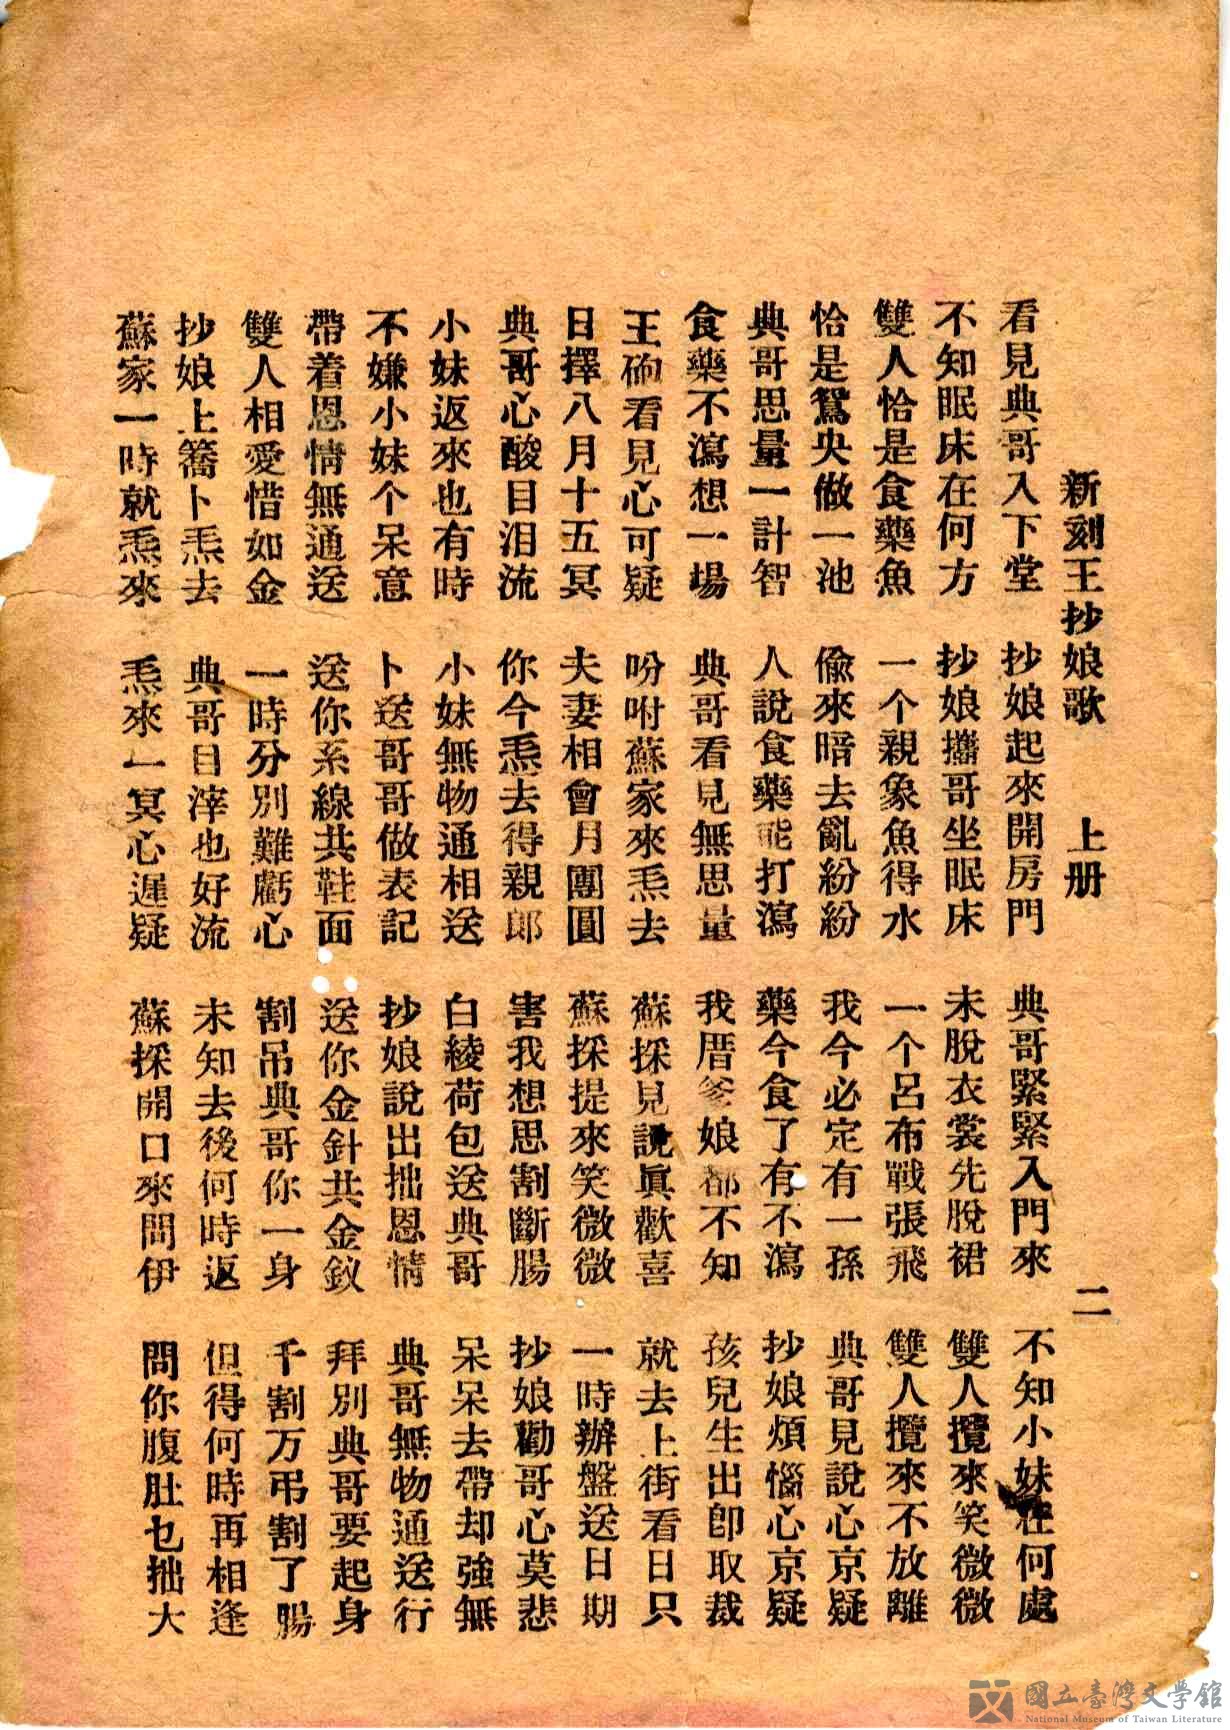 新刻王抄娘歌 上册 二
看見典哥入下堂 抄娘起來開房門 典哥緊緊入門來 不知小妹在何處
不知眠床在何方 抄娘攜哥坐眠床 未脫衣裳先脫裙 雙人攬來笑微微
雙人恰是食藥魚 一个親象魚得水 一个呂布戰張飛 雙人攬來不放離
恰是鴛央做一池 偸來暗去亂紛紛 我今必定有一孫 典哥見說心京疑
典哥思量一計智 人說食藥能打瀉 藥今食了有不瀉 抄娘煩惱心京疑
食藥不瀉想一場 典哥看見無思量 我厝爹娘都不知 孩兒生出卽取裁
王砲看見心可疑 吩咐蘇家來𤆬去 蘇採見說眞歡喜 就去上街看日只
日擇八月十五冥 夫妻相會月團圓 蘇採提來笑微微 一時辦盤送日期
典哥心酸目泪流 你今𤆬去得親郎 害我想思割斷腸 抄娘勸哥心莫悲
小妹返來也有時 小妹無物通相送 白綾荷包送典哥 呆呆去帶却強無
不嫌小妹个呆意 卜送哥哥做表記 抄娘說出拙恩情 典哥無物通送行
帶着恩情無通送 送你系線共鞋面 送你金針共金釵 拜別典哥要起身
雙人相愛惜如金 一時分別難虧心 割吊典哥你一身 千割万弔割了腸
抄娘上簥卜𤆬去 典哥目滓也好流 未知去後何時返 但得何時再相逢
蘇家一時就𤆬來 𤆬來一冥心遲疑 蘇採開口來問伊 問你腹肚乜拙大
國立臺灣文學館
National Museum of Taiwan Literature